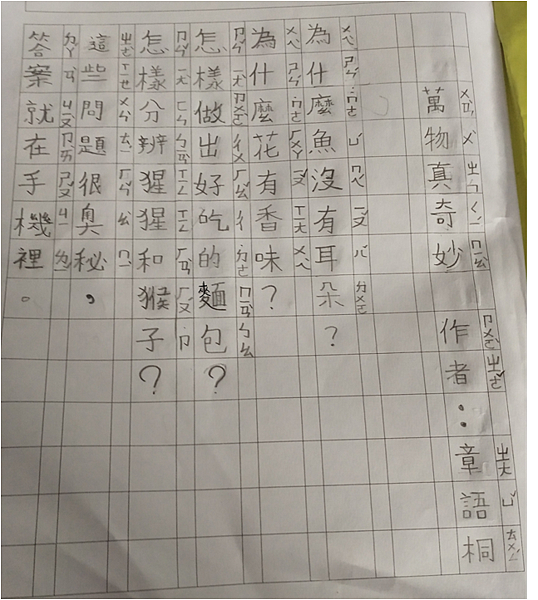 萬物真奇妙
作者：章語桐
為什麼魚沒有耳朵？
為什麼花有香味？
怎樣做出好吃的麵包？
怎樣分辨猩猩和猴子？
這些問題很奧秘，
答案就在手機裡。